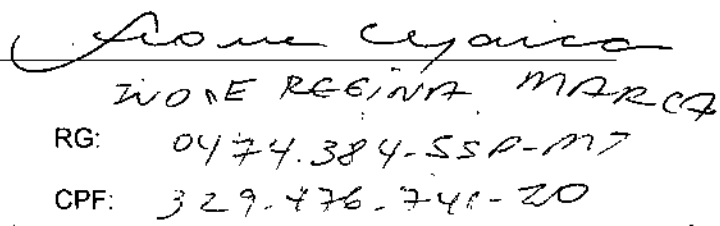 REGINA MARCA
RG: 0474.384-SSP-MT
CPF: 329.476.741-20